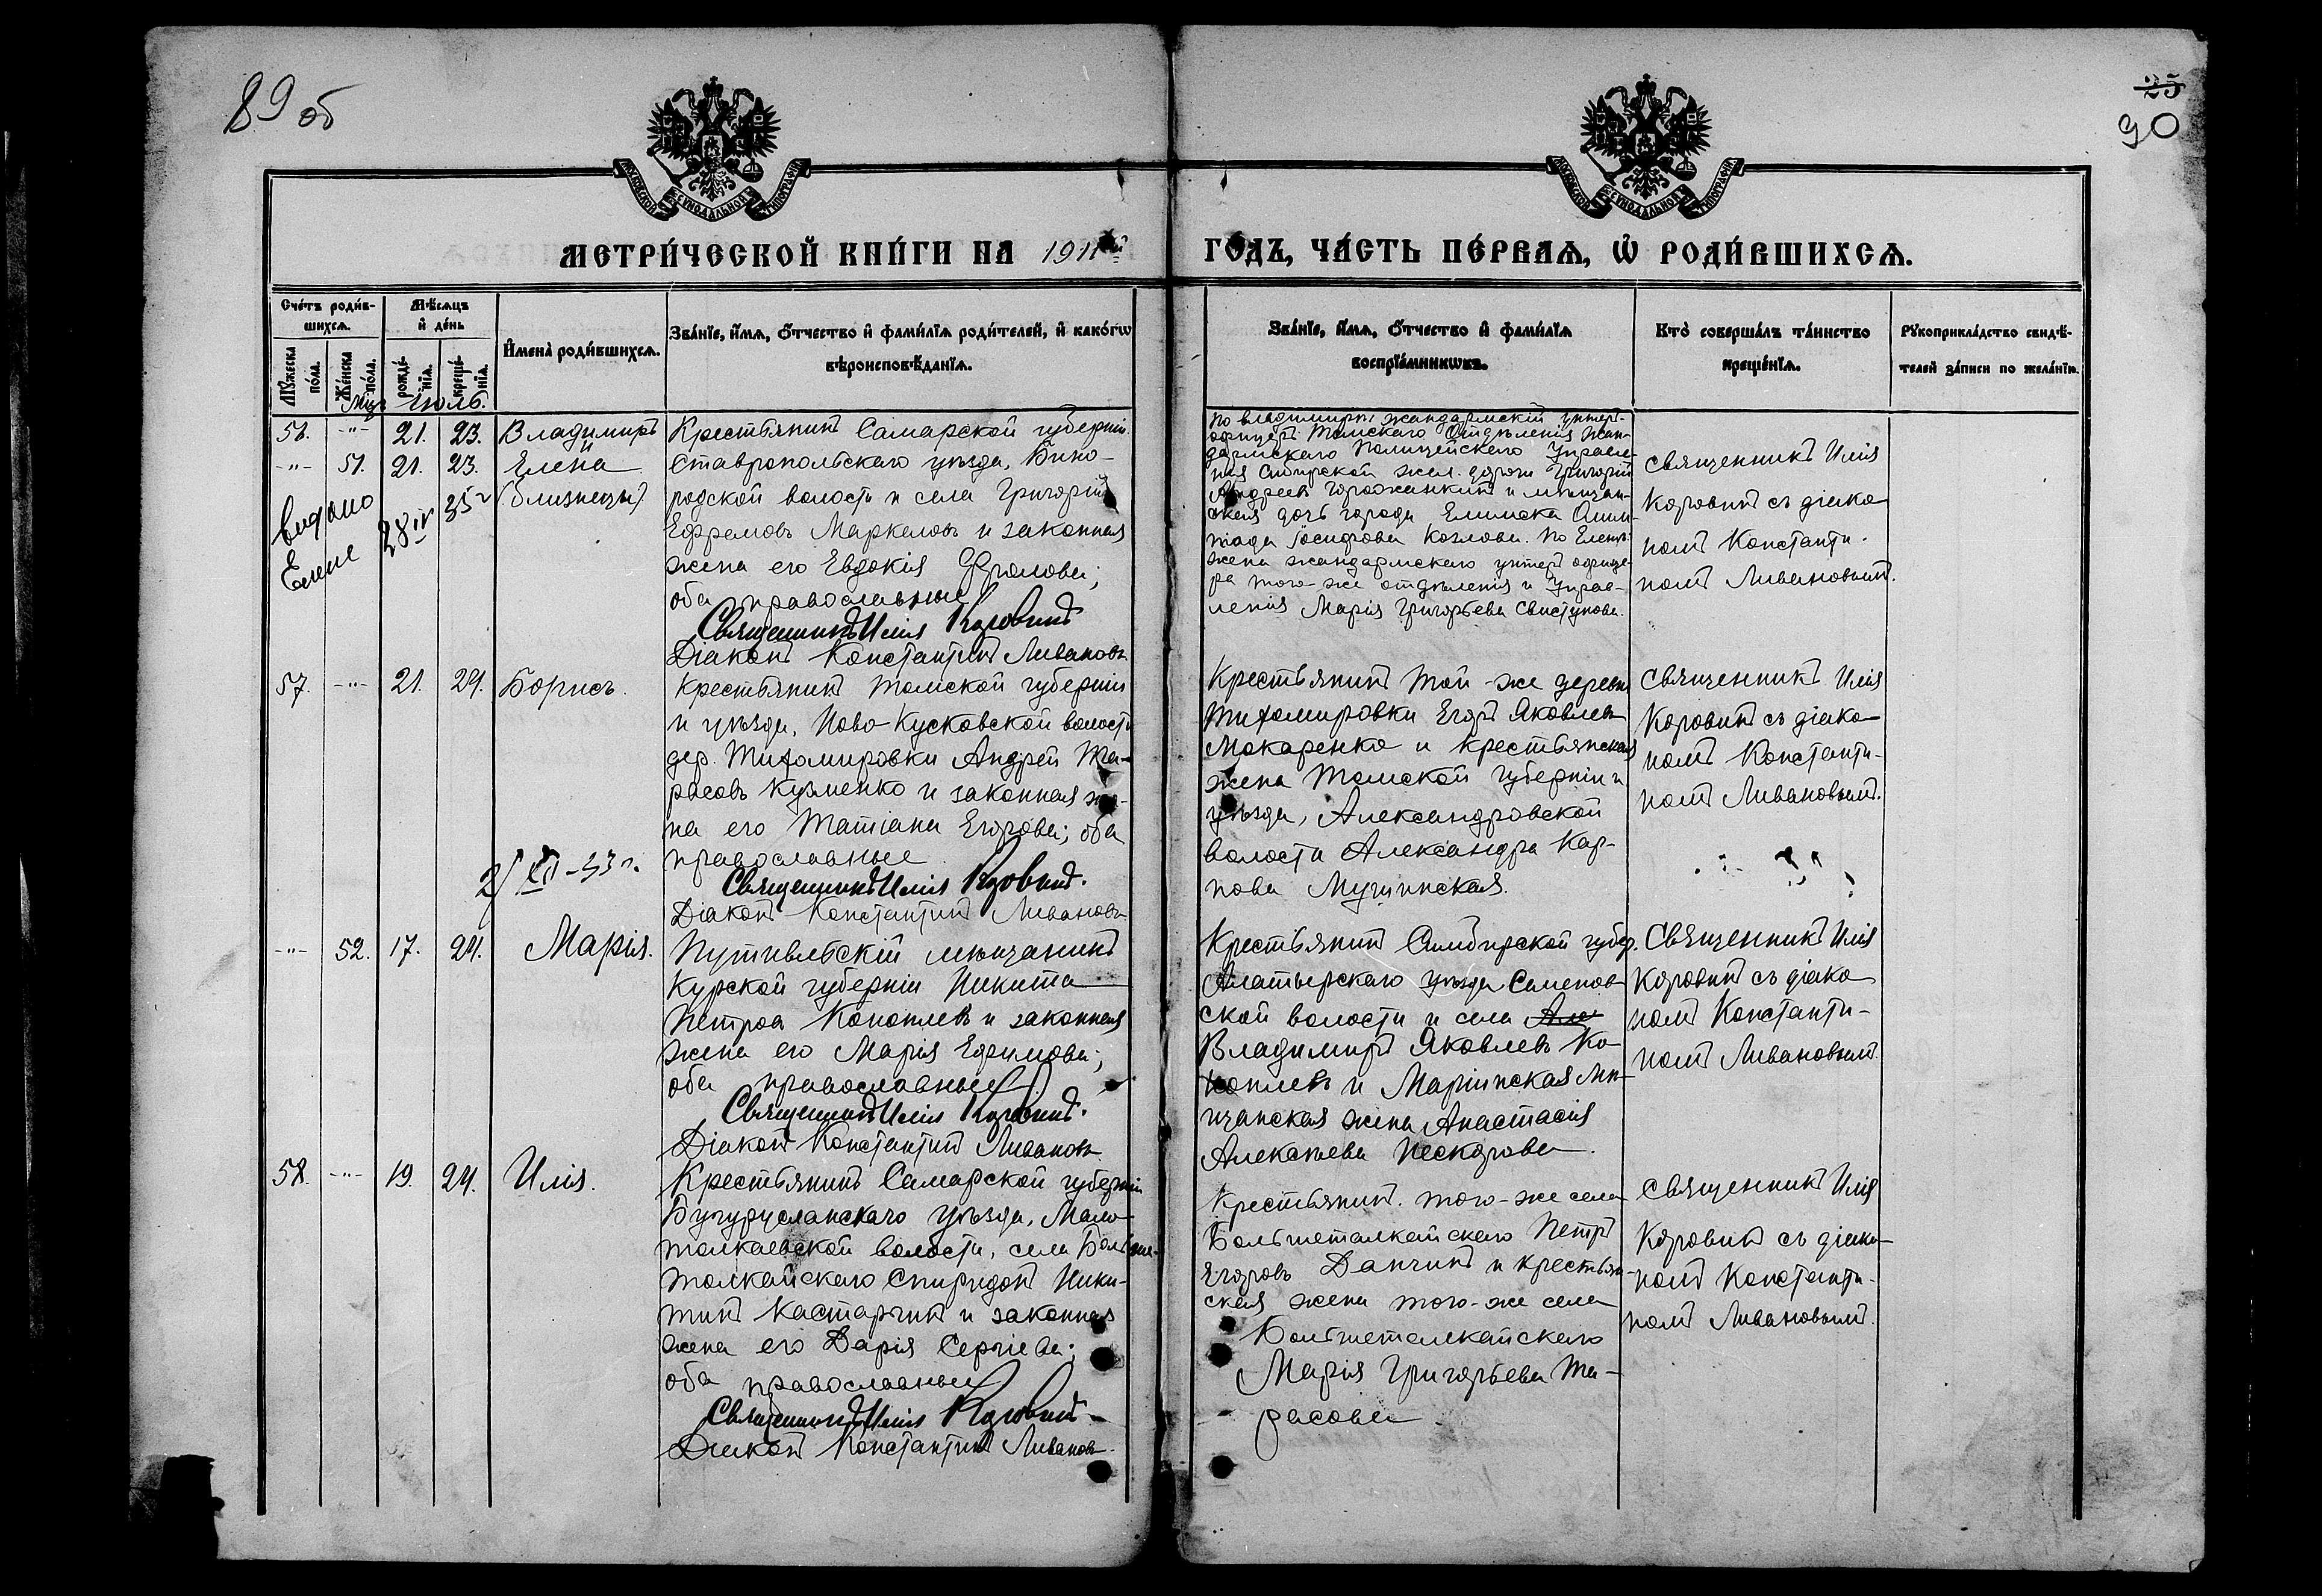 89 об
25
90
МОСКОВСКОЙ СѴНОДАЛЬНОЙ ТИПОГРАФІИ
МОСКОВСКОЙ СѴНОДАЛЬНОЙ ТИПОГРАФІИ
МЕТРИ́ЧЕСКОЙ КНИ́ГИ НА 1911й
ГО́ДЪ, ЧА́СТЬ ПЕ́РВАѦ, Ѽ РОДИ́ВШИХСѦ.
Сче́тъ роди́в-
шихсѧ.
Мꙋ́жеска по́ла.
Же́нска по́ла.
Мѣ́сѧцъ
и҆ де́нь
рожде́-
нїѧ.
креще́-
нїѧ.
И҆мена̀ роди́вшихсѧ.
Зва́нїе, и҆́мѧ, ѻ҆́тчество и҆ фами́лїѧ роди́телей, и҆ како́гѡ
вѣроисповѣ́данїѧ.
Зва́нїе, и҆́мѧ, ѻ҆́тчество и҆ фами́лїѧ
воспрїе́мникѡвъ.
Кто̀ соверша́лъ та́инство
креще́нїѧ.
Рꙋкоприкла́дство свидѣ́-
телей за́писи по жела́нїю.
Мцъ Іюль.
56. -"- 21. 23. Владиміръ
-"- 51. 21. 23. Елена
(близнецы)
выдано
Елене 28 IV 35 г
Крестьянинъ Самарской губерніи
Ставропольскаго уѣзда, Бино-
родской волости и села Григорій
Ефремовъ Маркеловъ и законная
жена его Евдокія Фролова;
оба православные
Священникъ Илія Коровинъ
Діаконъ Константинъ Ливановъ
По Владиміру: жандармскій унтеръ-
офицеръ Томскаго Отдѣленія Жан-
дармскаго Полицейскаго Управле-
нія Сибирской жел. дороги Григорій
Андреевъ Горожанкинъ и мѣщан-
ская дочь города Енисейска Олим-
піада Іосифова Козлова. По Еленѣ:
жена жандармскаго унтеръ офице-
ра того-же отдѣленія и Управ-
ленія Марія Григорьева Свистунова.
Священникъ Илія
Коровинъ съ діако-
номъ Константи-
номъ Ливановымъ.
57. -"- 21. 29. Борисъ.
2/XII-33 г.
Крестьянинъ Томской губерніи
и уѣзда, Ново-Кусковской волости
дер. Тихомировки Андрей Та-
расовъ Кузменко и законная же-
на его Татіана Егорова; оба
православные
Священникъ Илія Коровинъ.
Діаконъ Константинъ Ливановъ
Крестьянинъ той-же деревни
Тихомировки Егоръ Яковлевъ
Макаренко и крестьянская
жена Томской губерніи и
уѣзда, Александровской
волости Александра Кар-
пова Мушинская.
Священникъ Илія
Коровинъ съ діако-
номъ Константи-
номъ Ливановымъ.
-"- 52. 17. 24. Марія.
Путивльскій мѣщанинъ
Курской губерніи Никита
Петровъ Коноплевъ и законная
жена его Марія Ефимова;
оба православные
Священникъ Илія Коровинъ.
Діаконъ Константинъ Ливановъ.
Крестьянинъ Симбирской губер.
Алатырскаго уѣзда Семенов-
ской волости и села Але
Владиміръ Яковлевъ Ко-
ноплевъ и Маріинская мѣ-
щанская жена Анастасія
Алексѣева Нескорова.
Священникъ Илія
Коровинъ съ діако-
номъ Константи-
номъ Ливановымъ.
58. -"- 19. 24. Илія.
Крестьянинъ Самарской губерніи
Бугурусланскаго уѣзда, Мало-
толкаевской волости, села Больше-
толкайскаго Спиридонъ Ники-
тинъ Кастаргинъ и законная
жена его Дарія Сергіева;
оба православные
Священникъ Илія Коровинъ
Діаконъ Константинъ Ливановъ.
Крестьянинъ того-же села
Большеталкайскаго Петръ
Егоровъ Данчинъ и крестьян-
ская жена того-же села
Большеталкайскаго
Марія Григорьева Та-
расова
Священникъ Илія
Коровинъ съ діако-
номъ Константи-
номъ Ливановымъ.